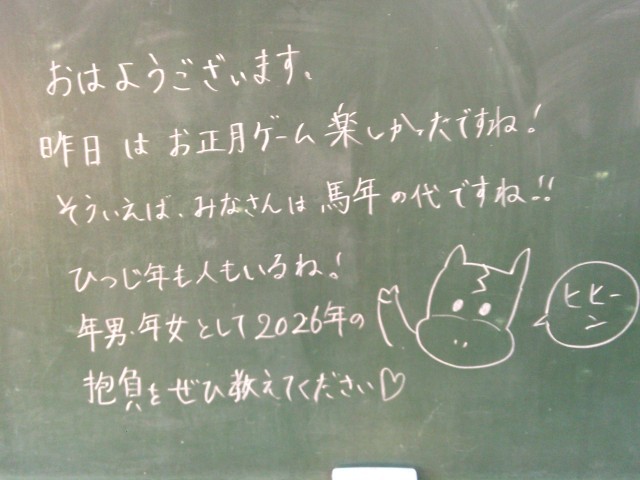 おはようございます。
昨日はお正月ゲーム楽しかったですね!
そういえば、みなさんは馬年の代ですね!!
ひつじ年も人もいるね!
年男・年女として2026年の
抱負をぜひ教えてください♡
ヒヒーン